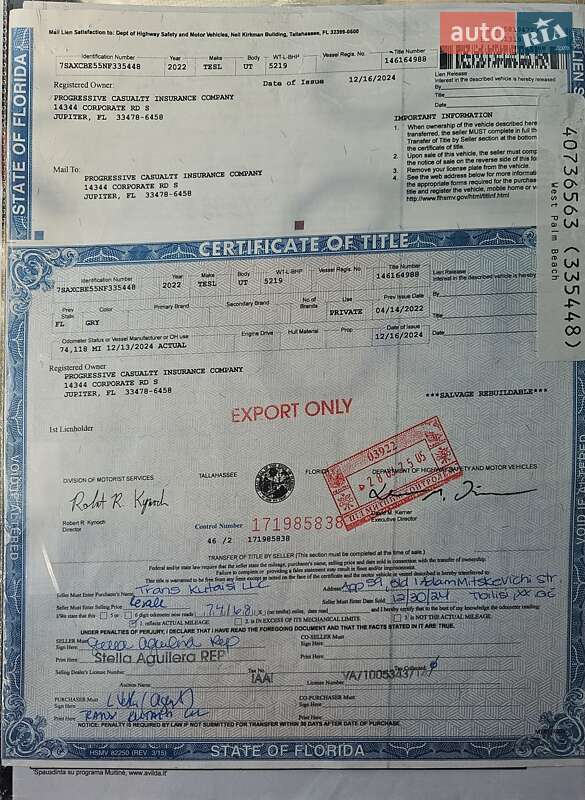 auto RIA.com
Mail Lien Satisfaction to: Dept of Highway Safety and Motor Vehicles, Neil Kirkman Building, Tallahassee, FL 32399-0600
STATE OF FLORIDA
Identification Number Year Make Body WT-L-BHP Vessel Regis. No. Title Number
7SAXCBE55NF335448 2022 TESL UT 5219 146164988
Date of Issue 12/16/2024
Lien Release
Interest in the described vehicle is hereby released
By
Title
Date
Registered Owner:
PROGRESSIVE CASUALTY INSURANCE COMPANY
14344 CORPORATE RD S
JUPITER, FL 33478-6458
IMPORTANT INFORMATION
1. When ownership of the vehicle described here
transferred, the seller MUST complete in full th
Transfer of Title by Seller section at the bottom
the certificate of title.
2. Upon sale of this vehicle, the seller must comp
the notice of sale on the reverse side of this fo
3. Remove your license plate from the vehicle.
4. See the web address below for more informati
the appropriate forms required for the purchase
title and register the vehicle, mobile home or v
http://www.flhsmv.gov/html/titlinf.html
Mail To:
PROGRESSIVE CASUALTY INSURANCE COMPANY
14344 CORPORATE RD S
JUPITER, FL 33478-6458
40736563 (335448)
West Palm Beach
CERTIFICATE OF TITLE
Identification Number Year Make Body WT-L-BHP Vessel Regis. No. Title Number
7SAXCBE55NF335448 2022 TESL UT 5219 146164988
Lien Release
Interest in the described vehicle is hereby
By
Title
Date
Prev State Color Primary Brand Secondary Brand No of Brands Use Prev Issue Date
FL GRY PRIVATE 04/14/2022
Odometer Status or Vessel Manufacturer or OH use Engine Drive Hull Material Prop Date of Issue
74,118 MI 12/13/2024 ACTUAL 12/16/2024
Registered Owner
PROGRESSIVE CASUALTY INSURANCE COMPANY
14344 CORPORATE RD S
JUPITER, FL 33478-6458
***SALVAGE REBUILDABLE***
EXPORT ONLY
1st Lienholder
03922
DIVISION OF MOTORIST SERVICES TALLAHASSEE FLORIDA DEPARTMENT OF HIGHWAY SAFETY AND MOTOR VEHICLES
Robert R. Kynoch
Robert R. Kynoch
Director
Control Number 171985838
46 /2 171985838
Kerner
Executive Director
TRANSFER OF TITLE BY SELLER (This section must be completed at the time of sale.)
Federal and/or state law require that the seller state the mileage, purchaser's name, selling price and date sold in connection with the transfer of ownership.
Failure to complete or providing a false statement may result in fines and/or imprisonment.
This title is warranted to be free from any liens except as noted on the face of the certificate and the motor vehicle or vessel described is hereby transferred to:
Seller Must Enter Purchaser's Name: Trans Kutaisi LLC Address: App 59, Bld 1 AdamMitskevichi str,
Seller Must Enter Selling Price: Seller Must Enter Date Sold: 12/20/24 Tbilisi,
I/We state that this 5 or 6 digit odometer now reads 74,168 (no tenths) miles, date read and I hereby certify that to the best of my knowledge the odometer reading:
1. reflects ACTUAL MILEAGE 2. is IN EXCESS OF ITS MECHANICAL LIMITS 3. is NOT THE ACTUAL MILEAGE
UNDER PENALTIES OF PERJURY, I DECLARE THAT I HAVE READ THE FOREGOING DOCUMENT AND THAT THE FACTS STATED IN IT ARE TRUE.
SELLER Must Sign Here: Stella Aguilera Rep CO-SELLER Must Sign Here:
Print Here: Stella Aguilera REP Print Here:
Selling Dealer's License Number: Tax No. Tax Collected
Auction Name IAAI License Number VA/1005343/1
PURCHASER Must Sign Here: (Agent) CO-PURCHASER Must Sign Here:
Print Here: Print Here:
NOTICE: PENALTY IS REQUIRED BY LAW IF NOT SUBMITTED FOR TRANSFER WITHIN 30 DAYS AFTER DATE OF PURCHASE.
STATE OF FLORIDA
HSMV 82250 (REV. 3/15)
Spausdinta su programa Muitinė, www.avilda.lt